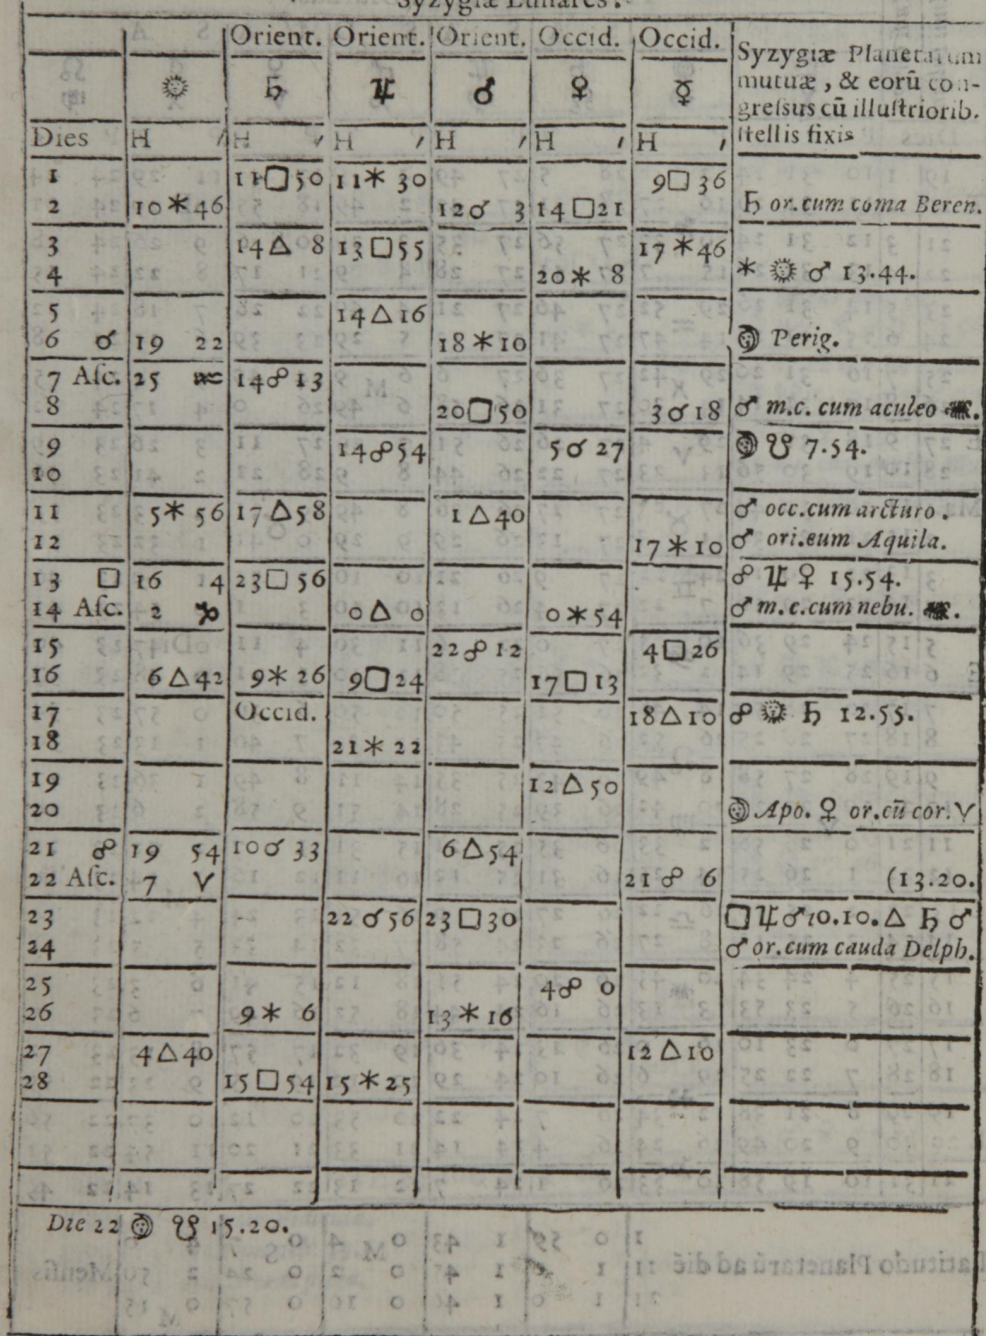 Syzygiæ Lunares.
Orient. Orient. Orient. Occid. Occid. Syzygiæ Planetarum
mutuæ, & eorũ con-
☼ ♄ ♃ ♂ ♀ ☿ greſsus cũ illuſtriorib.
Dies H ′ H ′ H ′ H ′ H ′ H ′ ſtellis fixis
1 11□50 11✶30 9□36
2 10✶46 12☌3 14□21 ♄ or. cum coma Beren.
3 14△8 13□55 17✶46
4 20✶8 ✶ ☼ ♂ 13.44.
5 14△16
6 ☌ 19 22 18✶10 ☽ Perig.
7 Aſc. 25 ♒ 14☍13
8 20□50 3☌18 ♂ m.c. cum aculeo ♏.
9 14☍54 5☌27 ☽ ☋ 7.54.
10
11 5✶56 17△58 1△40 ♂ occ.cum arcturo.
12 17✶10 ♂ ori.eum Aquila.
13 □ 16 4 23□56 ☍ ♃ ♀ 15.54.
14 Aſc. 2 ♑ 0△0 0✶54 ♂ m.c.cum nebu. ♏.
15 22☍12 4□26
16 6△42 9✶26 9□24 17□13
17 Occid. 18△10 ☍ ☼ ♄ 12.55.
18 21✶22
19 12△50
20 ☽ Apo. ♀ or.cũ cor.♈
21 ☍ 19 54 10☌33 6△54
22 Aſc. 7 ♈ 21☍6 (13.20.
23 22☌56 23□30 □♃♂10.10.△ ♄ ♂
24 ♂ or.cum cauda Delph.
25 4☍0
26 9✶6 13✶16
27 4△40 12△10
28 15□54 15✶25
Die 22 ☽ ☋ 15.20.